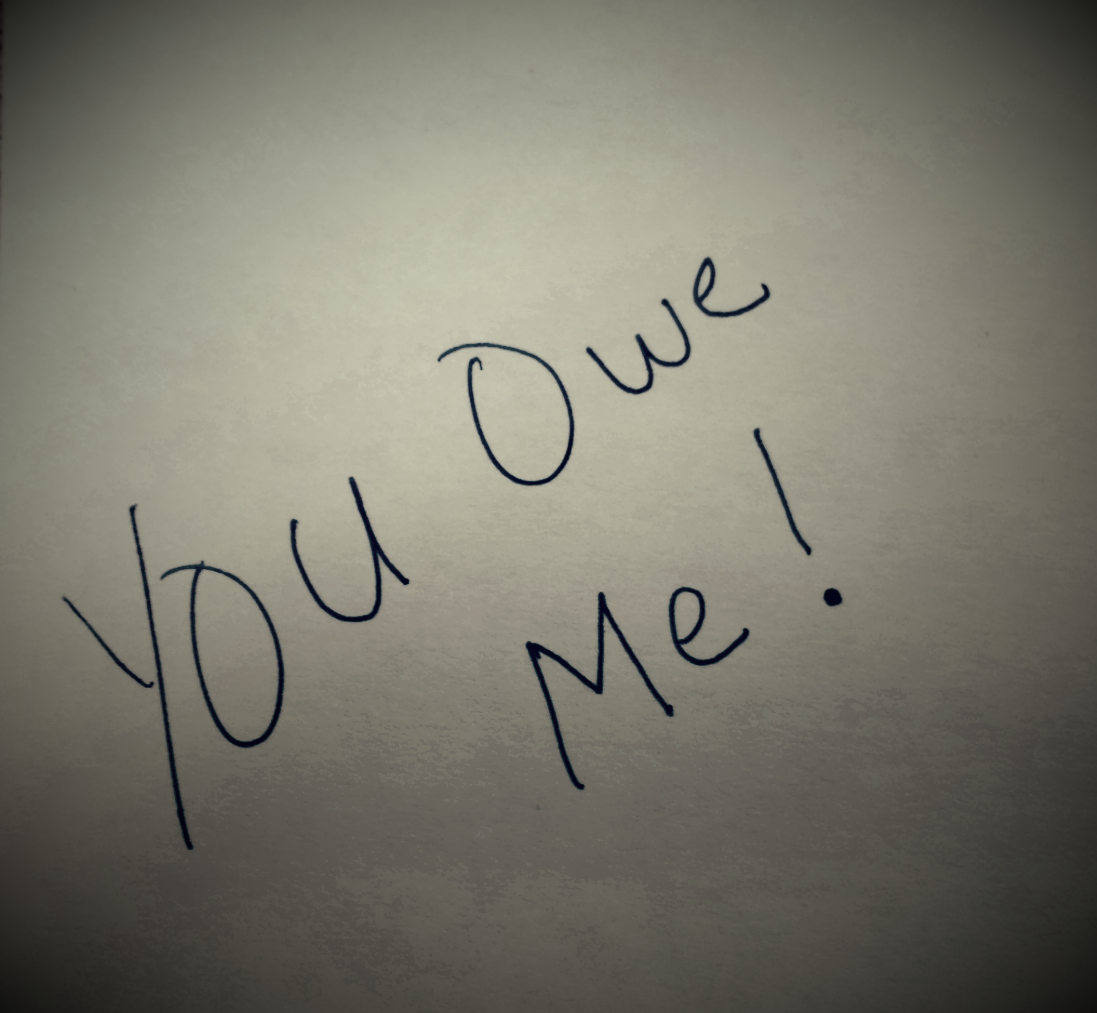 You Owe
Me!